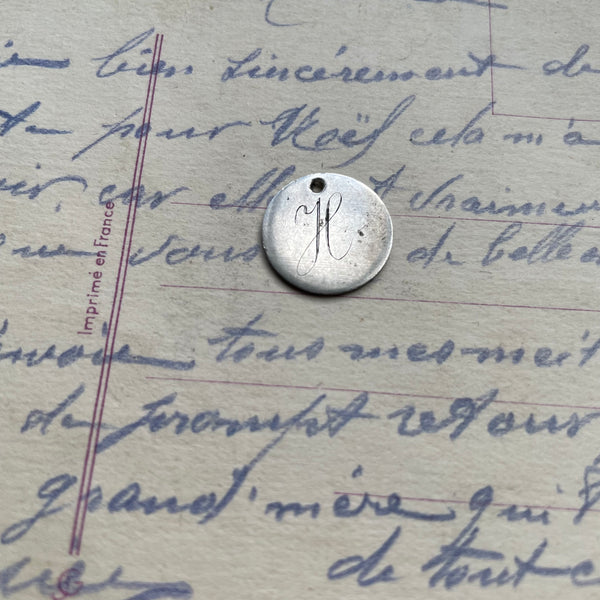 bien sincèrement de
pour Noël cela m'a
car elle vraimen
vous de belle
H
Imprimé en France
envoie tous mes meil
de prompt retour
grand'mère qui
de tout c